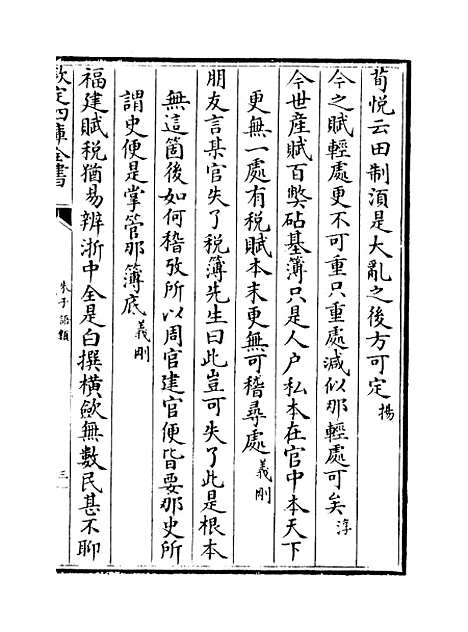 荀悦云田制湏是大亂之後方可定揚
今之賦輕處更不可重只重處減似那輕處可矣淳
今世産賦百弊砧基簿只是人户私本在官中本天下
更無一處有税賦本末更無可稽尋處義剛
朋友言某官失了税簿先生曰此豈可失了此是根本
無這箇後如何稽攷所以周官建官便皆要那史所
謂史便是掌管那簿底義剛
福建賦税猶易辨浙中全是白撰横歛無數民甚不聊
欽定四庫全書
朱子語類